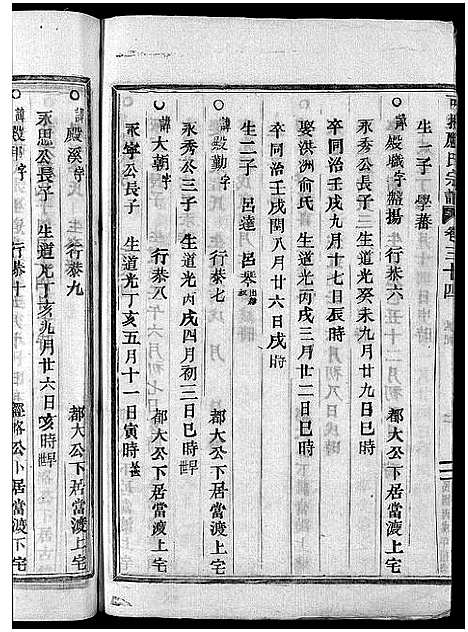 嚴氏宗譜 卷三十四
生一子 學蕃
諱殿颺字盤揚 行恭六 都大公下居當渡上宅
永秀公長子 生道光癸未九月廿九日辰時
卒同治壬戌九月十七日辰時
娶洪洲俞氏 生道光丙戌三月廿二日巳時
卒同治壬戌閏八月廿六日戌時
生二子 呂達 呂琴出繼
諱殿勤字 行恭七 都大公下居當渡上宅
永秀公三子 生道光丙戌四月初三日巳時
諱大朝字 行恭八 都大公下居當渡上宅
永寧公長子 生道光丁亥五月十一日寅時
諱殿溪字 行恭九 都大公下居當渡上宅
永思公長子 生道光丁亥九月廿六日亥時
行恭十 公下居當渡下宅